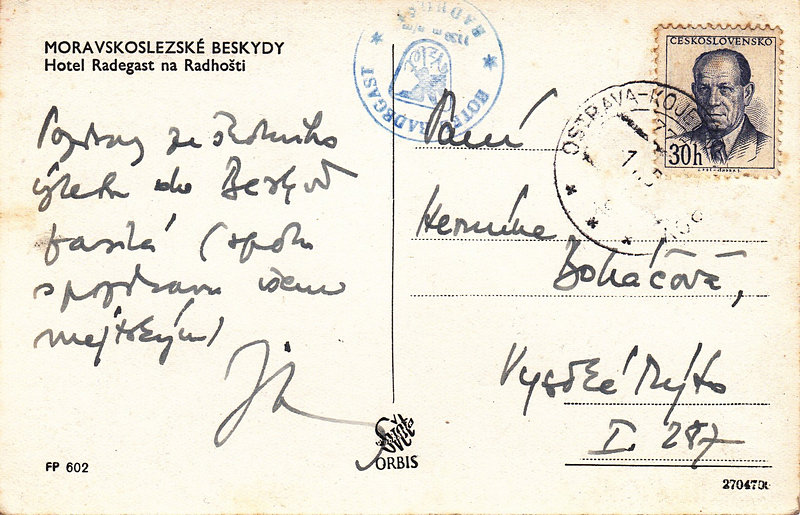 MORAVSKOSLEZSKÉ BESKYDY
Hotel Radegast na Radhošti
Pozdrav ze školního
výletu do Beskyd
posílá (spolu
s pozdravem všem
Jih
FP 602
ORBIS
HOTEL RADEGAST
ČESKOSLOVENSKO
30h
OSTRAVA-
Paní
Hermína
Boháčová,
Vysoké Mýto
I. 287